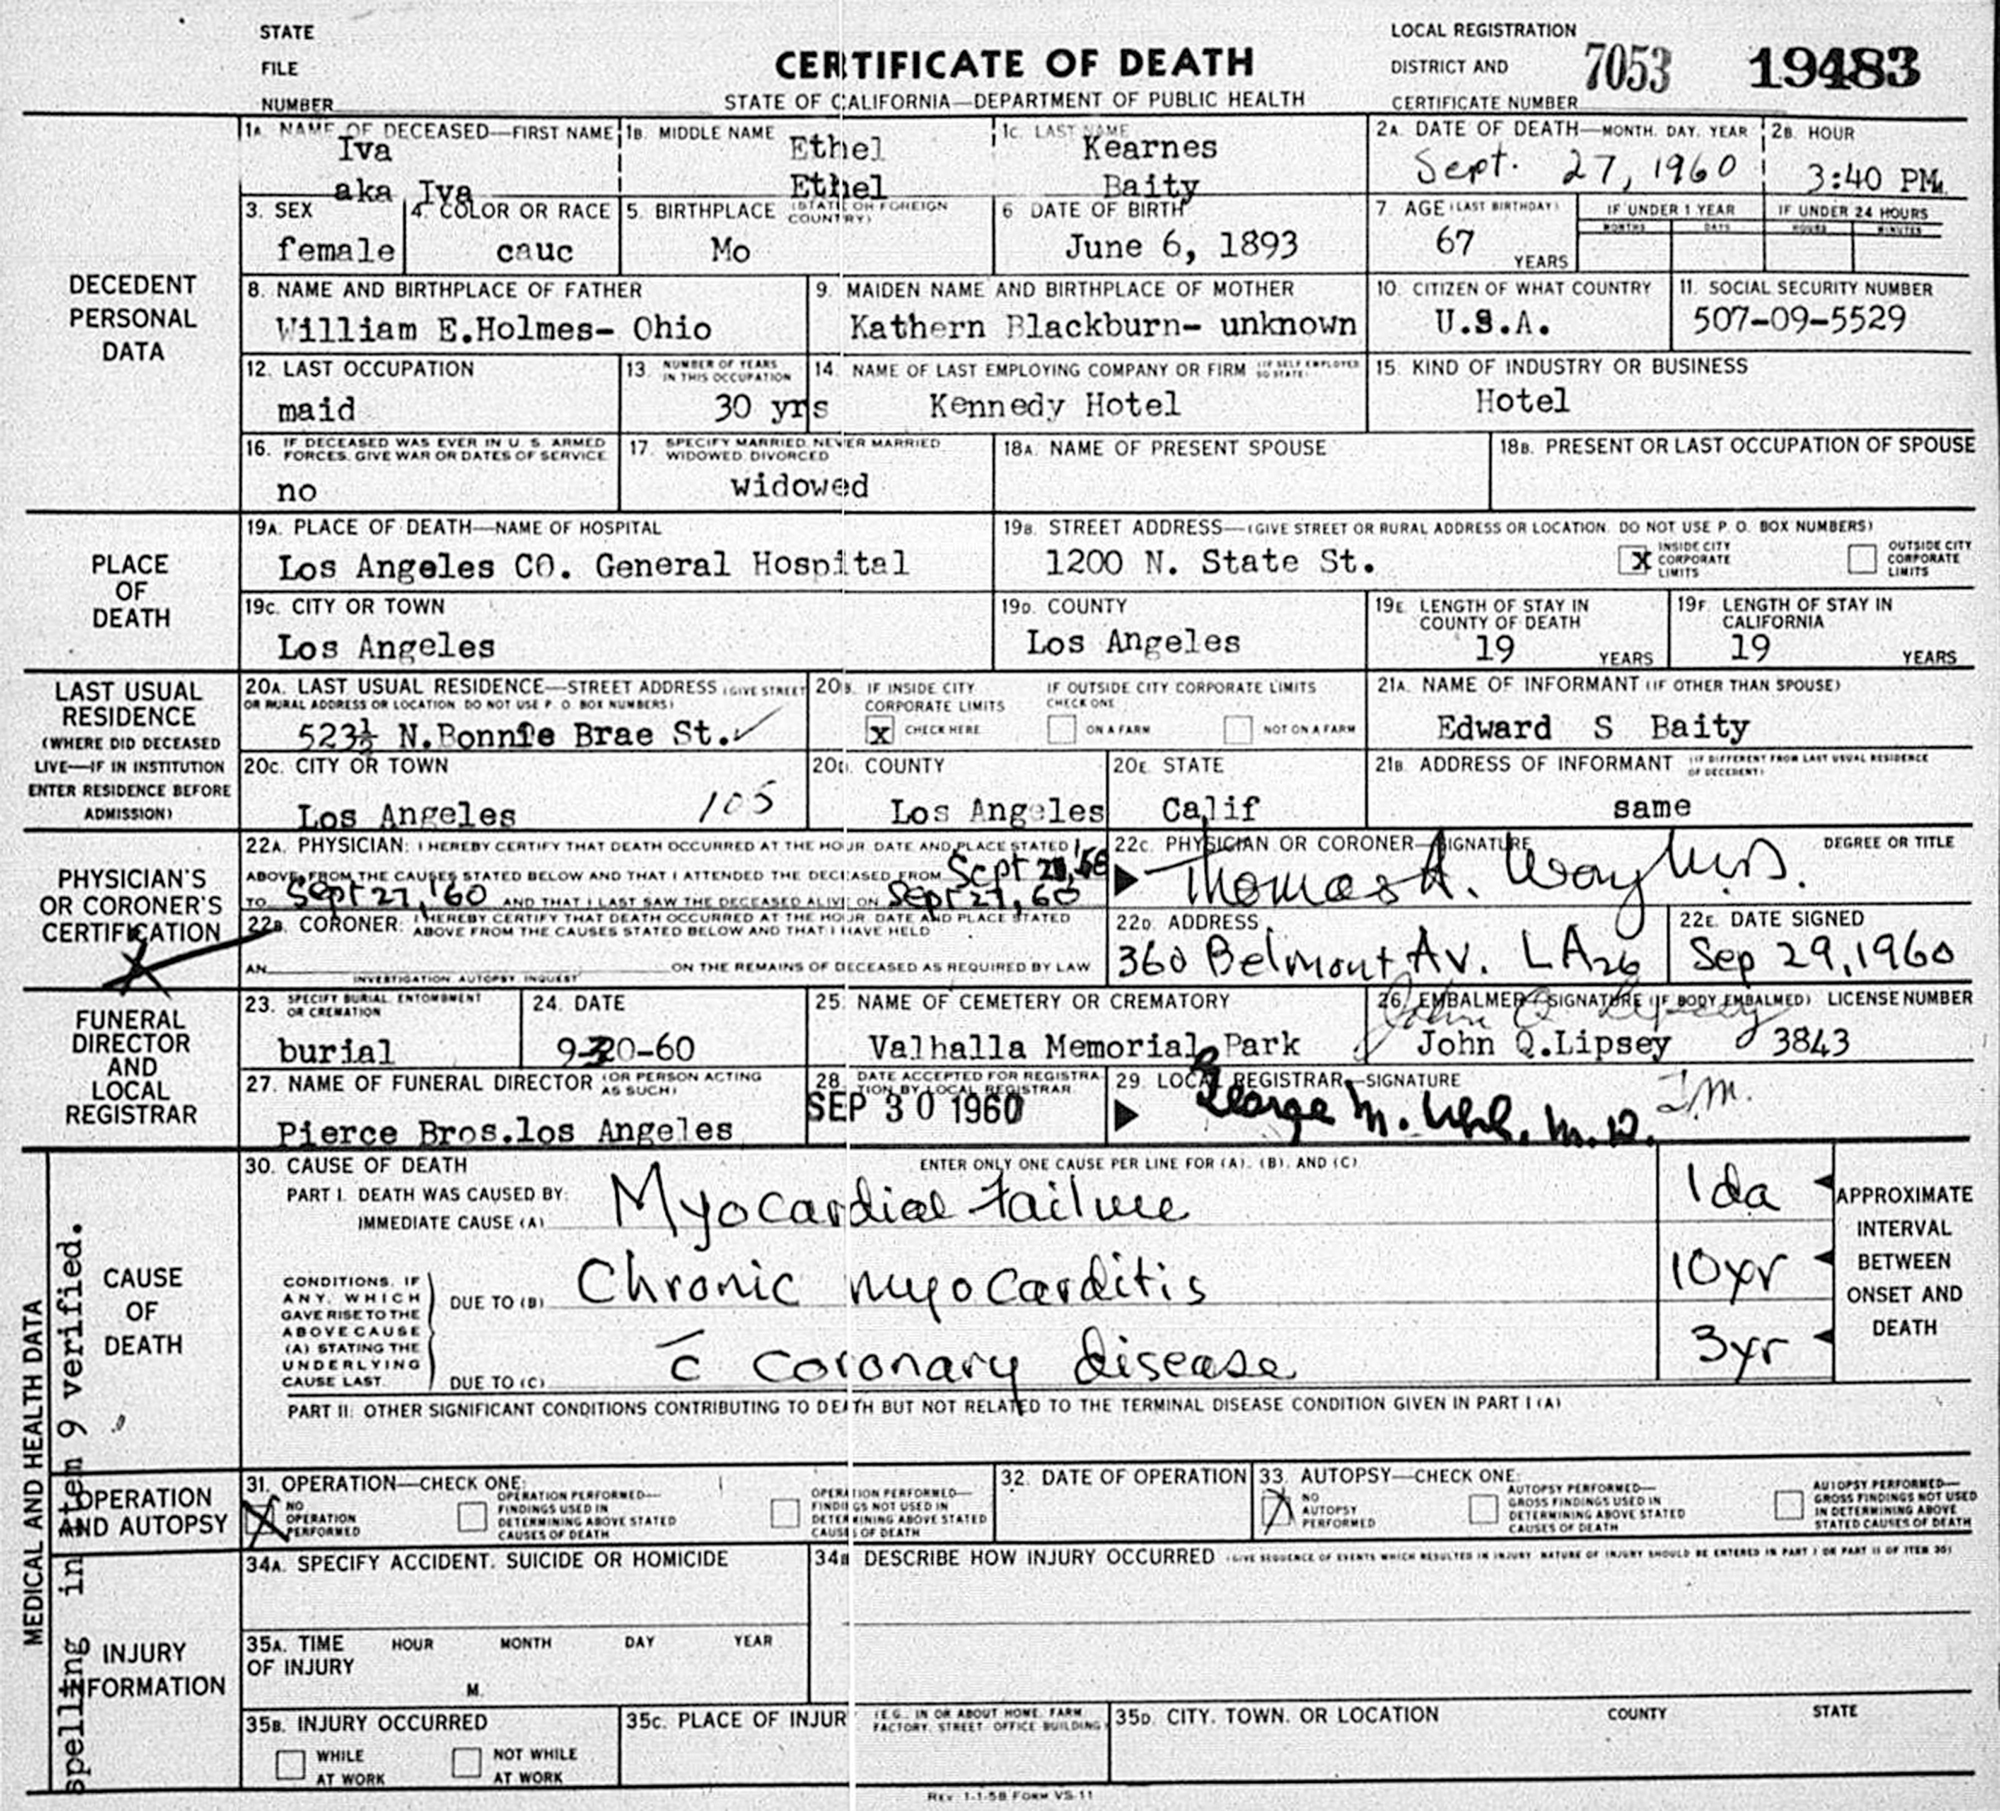 STATE
FILE
NUMBER
CERTIFICATE OF DEATH
STATE OF CALIFORNIA—DEPARTMENT OF PUBLIC HEALTH
LOCAL REGISTRATION
DISTRICT AND
CERTIFICATE NUMBER
7053 19483
DECEDENT
PERSONAL
DATA
1A. NAME OF DECEASED—FIRST NAME 1B. MIDDLE NAME 1C. LAST NAME
Iva Ethel Kearnes
aka Iva Ethel Baity
2A. DATE OF DEATH—MONTH, DAY, YEAR 2B. HOUR
Sept. 27, 1960 3:40 PM.
3. SEX
female
4. COLOR OR RACE
cauc
5. BIRTHPLACE (STATE OR FOREIGN COUNTRY)
Mo
6 DATE OF BIRTH
June 6, 1893
7. AGE (LAST BIRTHDAY)
67 YEARS
IF UNDER 1 YEAR
MONTHS DAYS
IF UNDER 24 HOURS
HOURS MINUTES
8. NAME AND BIRTHPLACE OF FATHER
William E.Holmes- Ohio
9. MAIDEN NAME AND BIRTHPLACE OF MOTHER
Kathern Blackburn- unknown
10. CITIZEN OF WHAT COUNTRY
U.S.A.
11. SOCIAL SECURITY NUMBER
507-09-5529
12. LAST OCCUPATION
maid
13. NUMBER OF YEARS IN THIS OCCUPATION
30 yrs
14. NAME OF LAST EMPLOYING COMPANY OR FIRM (IF SELF EMPLOYED SO STATE)
Kennedy Hotel
15. KIND OF INDUSTRY OR BUSINESS
Hotel
16. IF DECEASED WAS EVER IN U. S. ARMED FORCES, GIVE WAR OR DATES OF SERVICE
no
17. SPECIFY MARRIED, NEVER MARRIED WIDOWED, DIVORCED
widowed
18A. NAME OF PRESENT SPOUSE
18B. PRESENT OR LAST OCCUPATION OF SPOUSE
PLACE
OF
DEATH
19A. PLACE OF DEATH—NAME OF HOSPITAL
Los Angeles CO. General Hospital
19B. STREET ADDRESS—(GIVE STREET OR RURAL ADDRESS OR LOCATION. DO NOT USE P. O. BOX NUMBERS)
1200 N. State St.
X INSIDE CITY CORPORATE LIMITS
OUTSIDE CITY CORPORATE LIMITS
19C. CITY OR TOWN
Los Angeles
19D. COUNTY
Los Angeles
19E. LENGTH OF STAY IN COUNTY OF DEATH
19 YEARS
19F. LENGTH OF STAY IN CALIFORNIA
19 YEARS
LAST USUAL
RESIDENCE
(WHERE DID DECEASED
LIVE—IF IN INSTITUTION
ENTER RESIDENCE BEFORE
ADMISSION)
20A. LAST USUAL RESIDENCE—STREET ADDRESS (GIVE STREET
OR RURAL ADDRESS OR LOCATION DO NOT USE P. O. BOX NUMBERS)
523½ N.Bonnie Brae St.
20B. IF INSIDE CITY CORPORATE LIMITS
X CHECK HERE
IF OUTSIDE CITY CORPORATE LIMITS
CHECK ONE
ON A FARM NOT ON A FARM
21A. NAME OF INFORMANT (IF OTHER THAN SPOUSE)
Edward S Baity
20C. CITY OR TOWN
Los Angeles 105
20D. COUNTY
Los Angeles
20E. STATE
Calif
21B. ADDRESS OF INFORMANT (IF DIFFERENT FROM LAST USUAL RESIDENCE OF DECEDENT)
same
PHYSICIAN'S
OR CORONER'S
CERTIFICATION
22A. PHYSICIAN: I HEREBY CERTIFY THAT DEATH OCCURRED AT THE HOUR DATE AND PLACE STATED
ABOVE, FROM THE CAUSES STATED BELOW AND THAT I ATTENDED THE DECEASED FROM Sept
TO Sept 27, '60 AND THAT I LAST SAW THE DECEASED ALIVE ON Sept 27, 60
22B. CORONER: I HEREBY CERTIFY THAT DEATH OCCURRED AT THE HOUR, DATE AND PLACE STATED
ABOVE FROM THE CAUSES STATED BELOW AND THAT I HAVE HELD
AN ON THE REMAINS OF DECEASED AS REQUIRED BY LAW
INVESTIGATION, AUTOPSY, INQUEST
22C. PHYSICIAN OR CORONER—SIGNATURE DEGREE OR TITLE
Thomas A. Way M.D.
22D. ADDRESS
360 Belmont Av. LA 26
22E. DATE SIGNED
Sep 29, 1960
FUNERAL
DIRECTOR
AND
LOCAL
REGISTRAR
23. SPECIFY BURIAL, ENTOMBMENT OR CREMATION
burial
24. DATE
9-30-60
25. NAME OF CEMETERY OR CREMATORY
Valhalla Memorial Park
26. EMBALMER—SIGNATURE (IF BODY EMBALMED) LICENSE NUMBER
John Q Lipsey
John Q.Lipsey 3843
27. NAME OF FUNERAL DIRECTOR (OR PERSON ACTING AS SUCH)
Pierce Bros.los Angeles
28. DATE ACCEPTED FOR REGISTRATION BY LOCAL REGISTRAR
SEP 30 1960
29. LOCAL REGISTRAR—SIGNATURE
George M. Uhl, M.D.
MEDICAL AND HEALTH DATA
spelling in item 9 verified.
CAUSE
OF
DEATH
30. CAUSE OF DEATH ENTER ONLY ONE CAUSE PER LINE FOR (A), (B), AND (C)
PART I. DEATH WAS CAUSED BY:
IMMEDIATE CAUSE (A) Myocardial Failure 1 da
CONDITIONS, IF
ANY, WHICH
GAVE RISE TO THE
ABOVE CAUSE
(A) STATING THE
UNDERLYING
CAUSE LAST.
DUE TO (B) Chronic myocarditis 10 yr
DUE TO (C) c̄ coronary disease 3 yr
APPROXIMATE
INTERVAL
BETWEEN
ONSET AND
DEATH
PART II: OTHER SIGNIFICANT CONDITIONS CONTRIBUTING TO DEATH BUT NOT RELATED TO THE TERMINAL DISEASE CONDITION GIVEN IN PART I (A)
OPERATION
AND AUTOPSY
31. OPERATION—CHECK ONE:
X NO OPERATION PERFORMED
OPERATION PERFORMED—FINDINGS USED IN DETERMINING ABOVE STATED CAUSES OF DEATH
OPERATION PERFORMED—FINDINGS NOT USED IN DETERMINING ABOVE STATED CAUSES OF DEATH
32. DATE OF OPERATION
33. AUTOPSY—CHECK ONE:
NO AUTOPSY PERFORMED
AUTOPSY PERFORMED—GROSS FINDINGS USED IN DETERMINING ABOVE STATED CAUSES OF DEATH
AUTOPSY PERFORMED—GROSS FINDINGS NOT USED IN DETERMINING ABOVE STATED CAUSES OF DEATH
INJURY
INFORMATION
34A. SPECIFY ACCIDENT, SUICIDE OR HOMICIDE
34B DESCRIBE HOW INJURY OCCURRED (GIVE SEQUENCE OF EVENTS WHICH RESULTED IN INJURY. NATURE OF INJURY SHOULD BE ENTERED IN PART I OR PART II OF ITEM 30)
35A. TIME OF INJURY HOUR MONTH DAY YEAR
M.
35B. INJURY OCCURRED
WHILE AT WORK
NOT WHILE AT WORK
35C. PLACE OF INJUR (E.G., IN OR ABOUT HOME, FARM, FACTORY, STREET, OFFICE BUILDING)
35D. CITY, TOWN, OR LOCATION COUNTY STATE
REV. 1-1-58 FORM VS-11